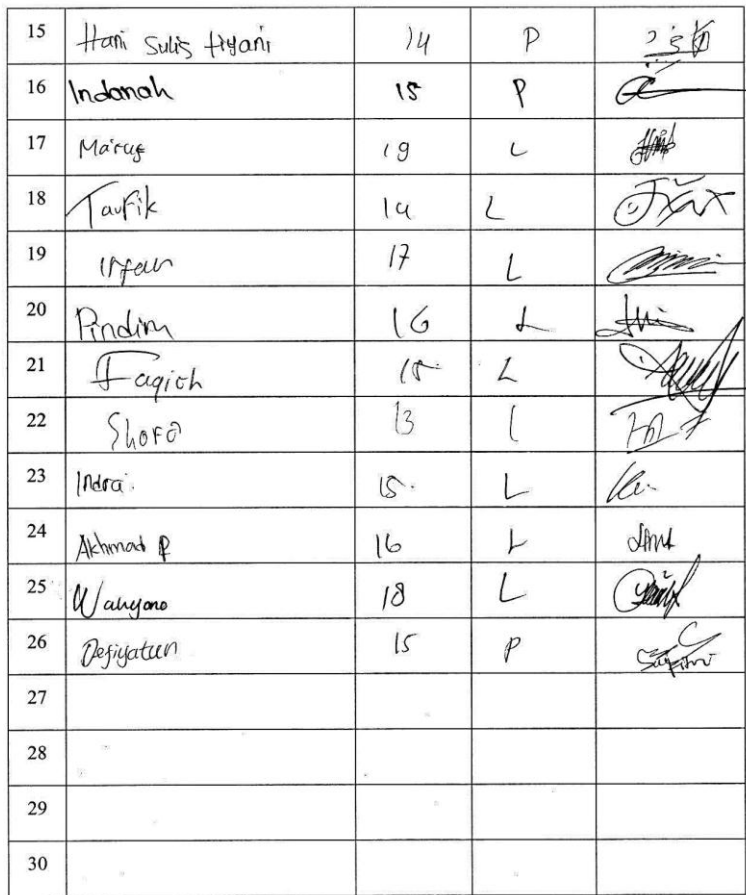 15 Hani Sulis tiyani 14 P
16 Indanah 15 P
17 Ma'ruf 19 L
18 Taufik 14 L
19 Irfan 17 L
20 Pindim 16 L
21 Faqich 15 L
22 Shofa 13 L
23 Indra 15 L
24 Akhmad P 16 L
25 Wahyono 18 L
26 Defiyatun 15 P
27
28
29
30